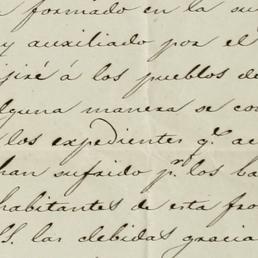 formado en la su
y auxiliado por el
jiré á los pueblos de
lguna manera se co
los expedientes q.e ac
han sufrido p.r los ba
habitantes de esta fro
S. las debidas gracia